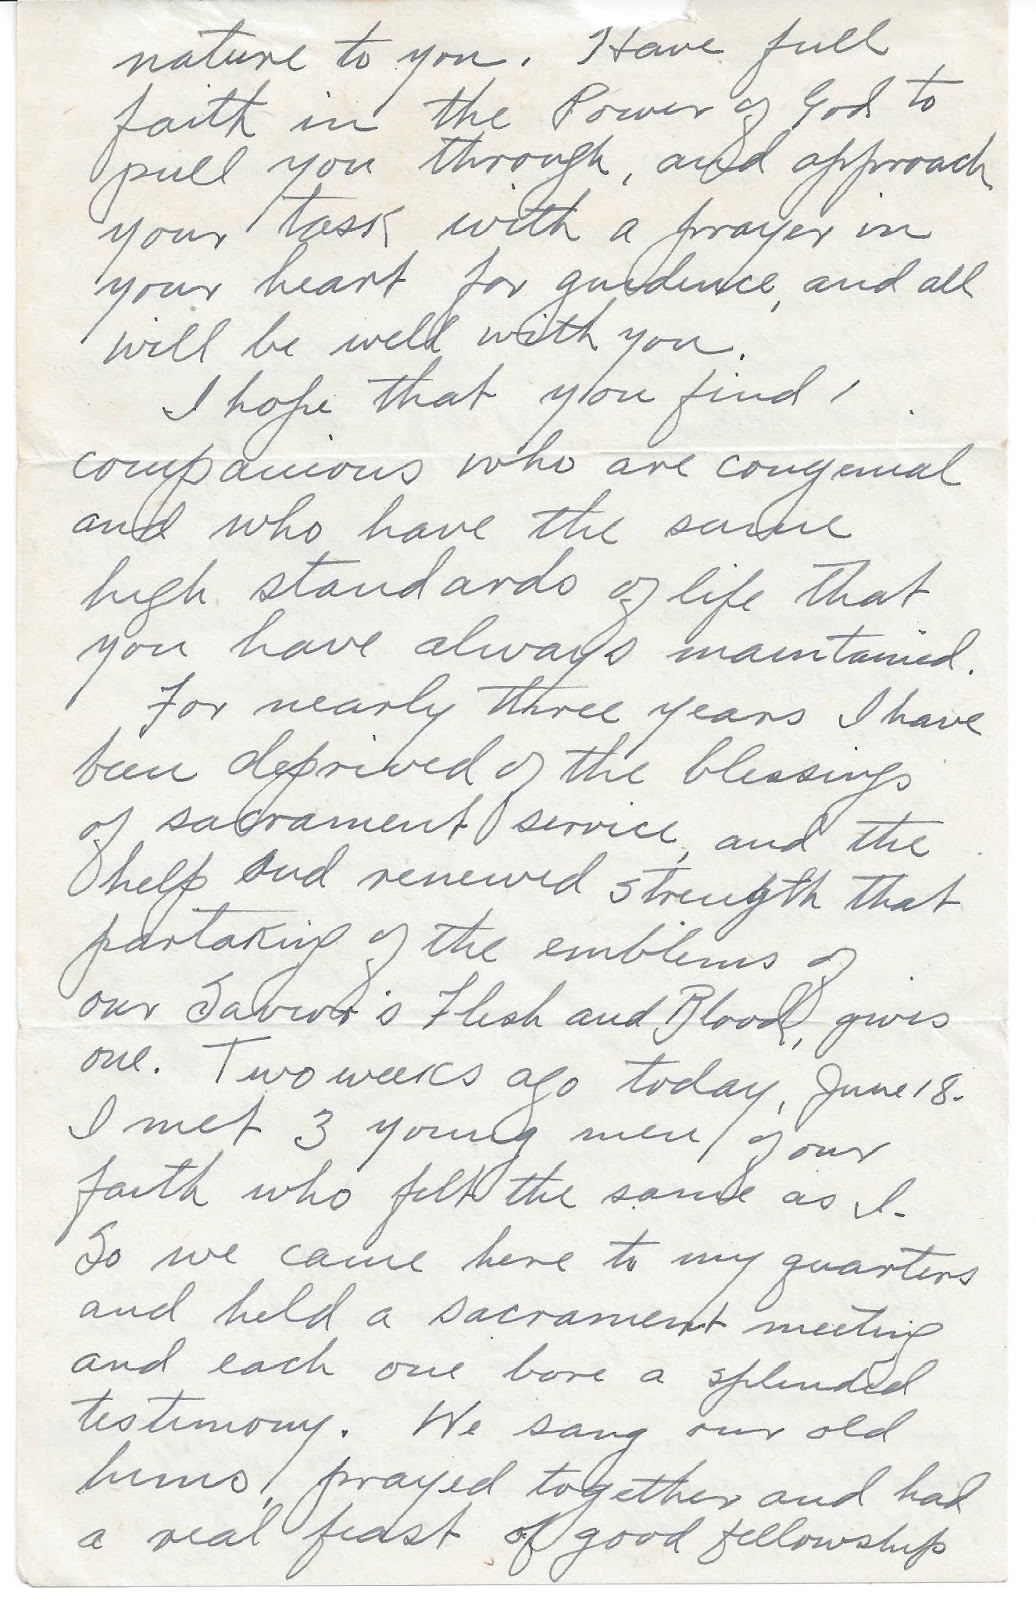 nature to you. Have full
faith in the Power of God to
pull you through, and approach
your task with a prayer in
your heart for guidence, and all
will be well with you.
I hope that you find
companions who are congenial
and who have the same
high standards of life that
you have always maintained.
For nearly three years I have
been deprived of the blessings
of sacrament service, and the
help and renewed strength that
partaking of the emblems of
our Savior's Flesh and Blood, gives
one. Two weeks ago today, June 18.
I met 3 young men of our
faith who felt the same as I.
So we came here to my quarters
and held a sacrament meeting
and each one bore a splended
testimony. We sang our old
hims, prayed together and had
a real feast of good fellowship